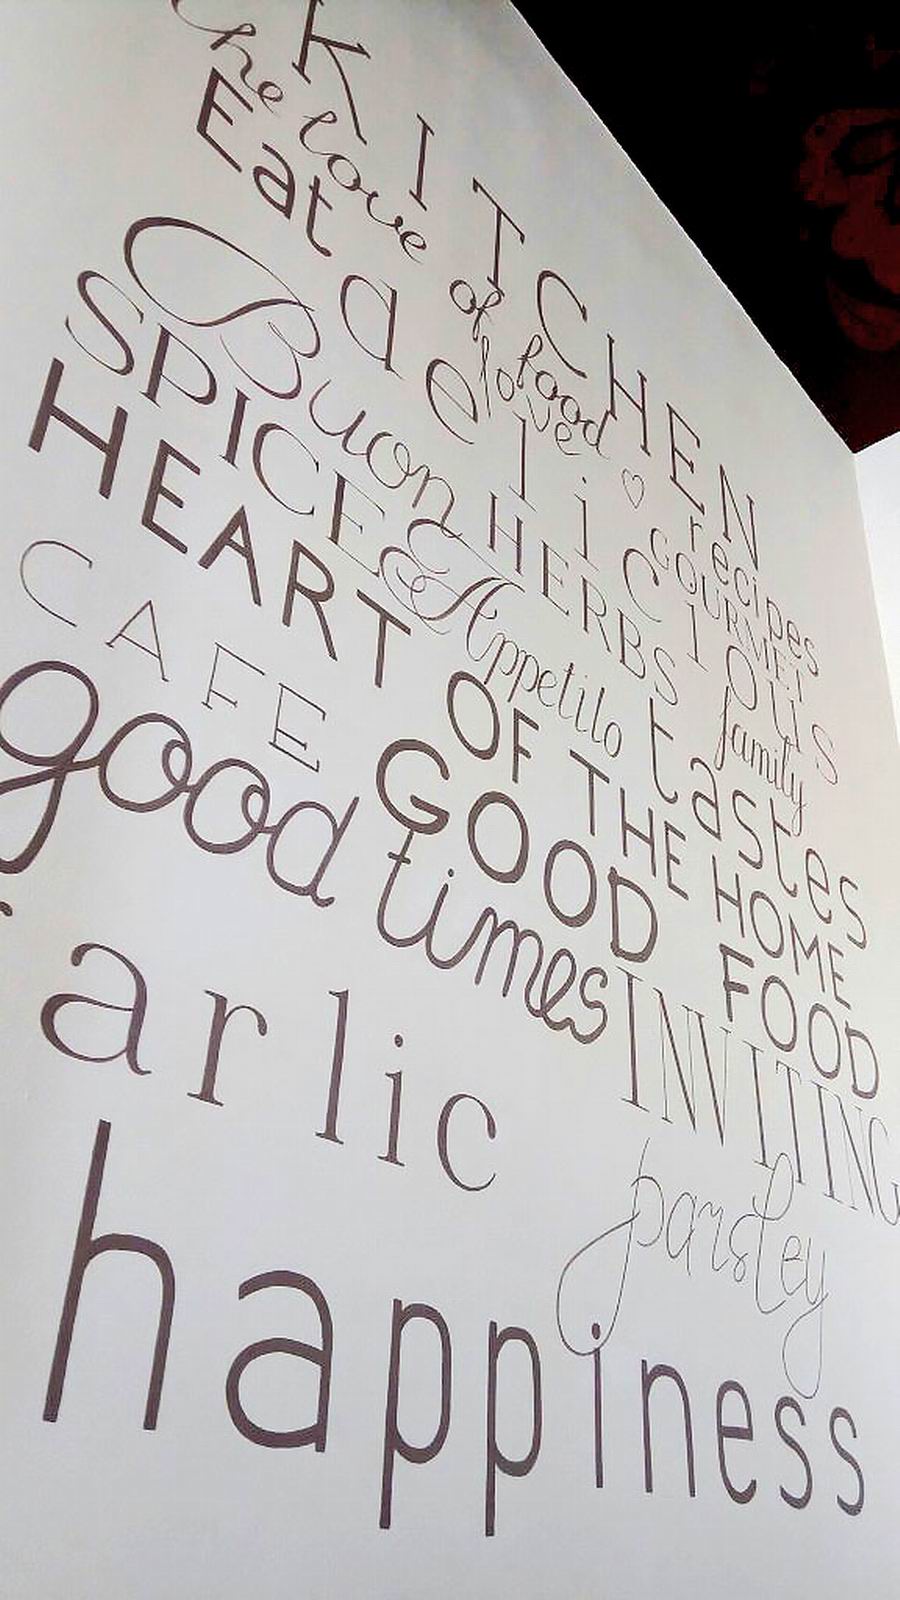 KITCHEN
The love of food ♡ recipes
Eat love GOURMET
delicious
Buon Appetito family
SPICE & HERBS tastes
HEART OF THE HOME
CAFE GOOD FOOD
good times INVITING
arlic parsley
happiness